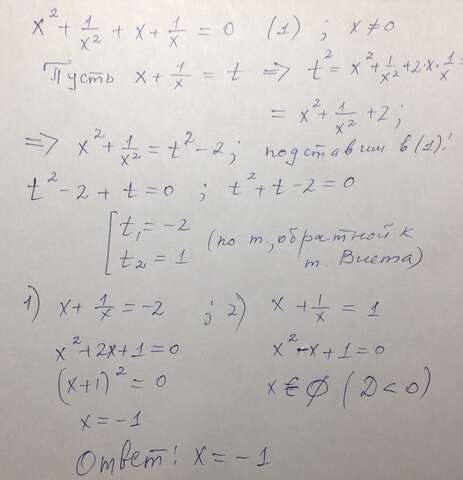 x² + 1/x² + x + 1/x = 0 (1) ; x ≠ 0
Пусть x + 1/x = t ⇒ t² = x² + 1/x² + 2·x·1/x =
= x² + 1/x² + 2 ;
⇒ x² + 1/x² = t² - 2 ; подставим в (1)!
t² - 2 + t = 0 ; t² + t - 2 = 0
[ t₁ = -2
t₂ = 1 (по т., обратной к
т. Виета)
1) x + 1/x = -2 ; 2) x + 1/x = 1
x² + 2x + 1 = 0 x² - x + 1 = 0
(x+1)² = 0 x ∈ ∅ (D < 0)
x = -1
Ответ: x = -1